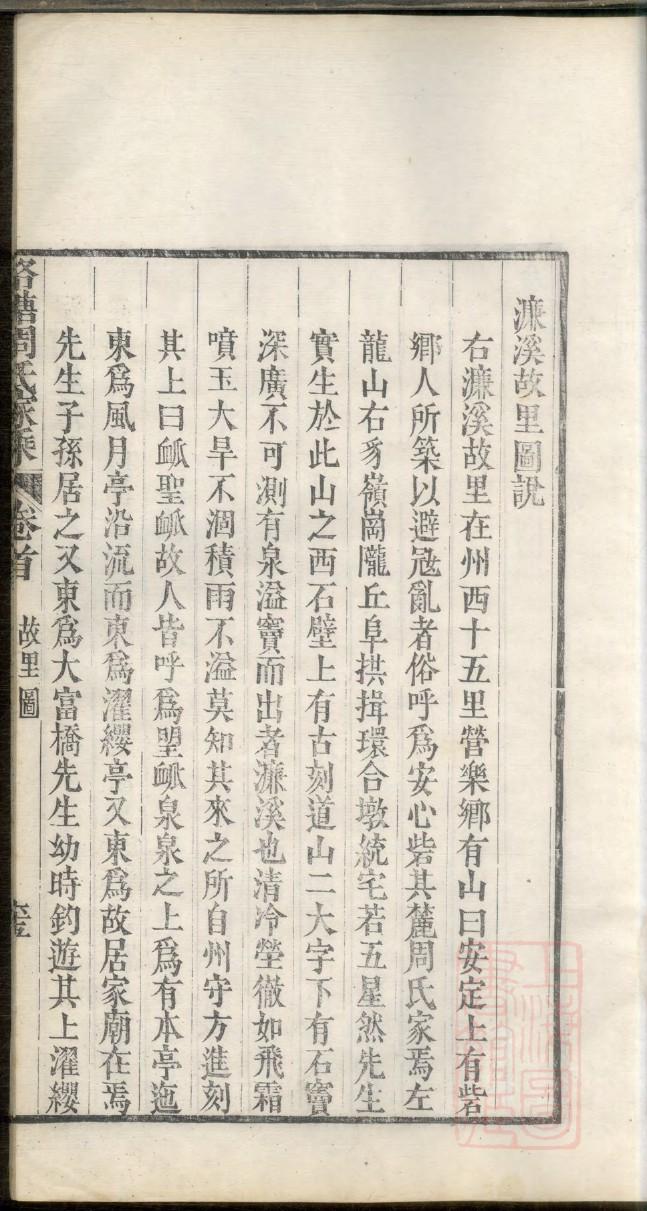 濂溪故里圖說
右濂溪故里在州西十五里營樂鄉有山曰安定上有砦
鄉人所築以避冦亂者俗呼爲安心砦其麓周氏家焉左
龍山右豸嶺崗隴丘阜拱揖環合墩統宅若五星然先生
實生於此山之西石壁上有古刻道山二大字下有石竇
深廣不可測有泉溢竇而出者濂溪也清冷瑩徹如飛霜
噴玉大旱不涸積雨不溢莫知其來之所自州守方進刻
其上曰衇聖衇故人皆呼爲聖衇泉泉之上爲有本亭迤
東爲風月亭沿流而東爲濯纓亭又東爲故居家廟在焉
先生子孫居之又東爲大富橋先生幼時釣遊其上濯纓
周氏家乘 卷首 故里圖